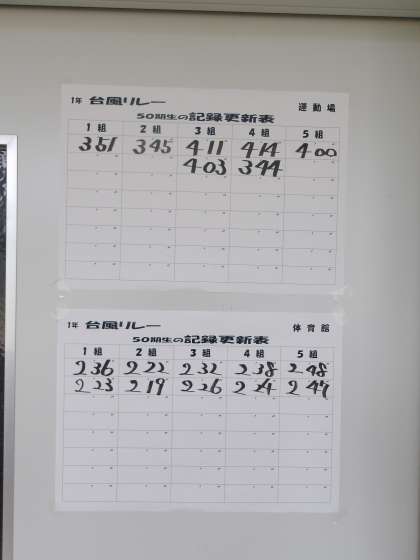 1年 台風リレー 運動場
50期生の記録更新表
1組 2組 3組 4組 5組
3'51 3'45 4'11 4'14 4'00
4'03 3'44
1年 台風リレー 体育館
50期生の記録更新表
1組 2組 3組 4組 5組
2'36 2'22 2'32 2'38 2'48
2'23 2'19 2'26 2'24 2'47